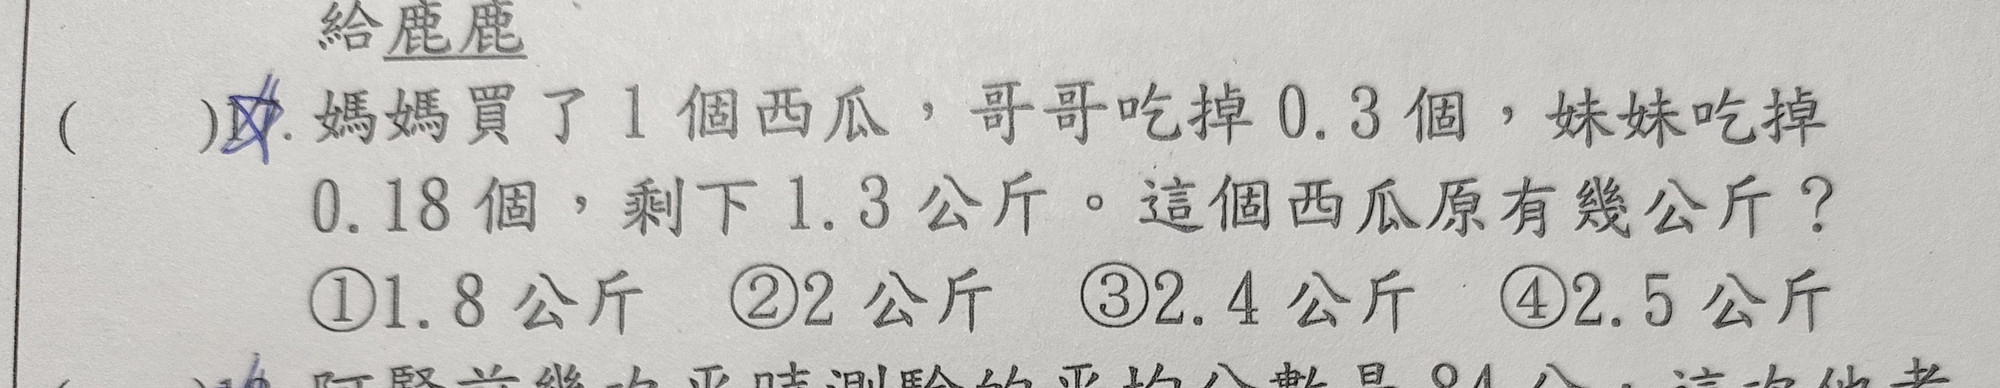 給鹿鹿
(　　). 媽媽買了1個西瓜，哥哥吃掉0.3個，妹妹吃掉
0.18個，剩下1.3公斤。這個西瓜原有幾公斤？
①1.8公斤　②2公斤　③2.4公斤　④2.5公斤